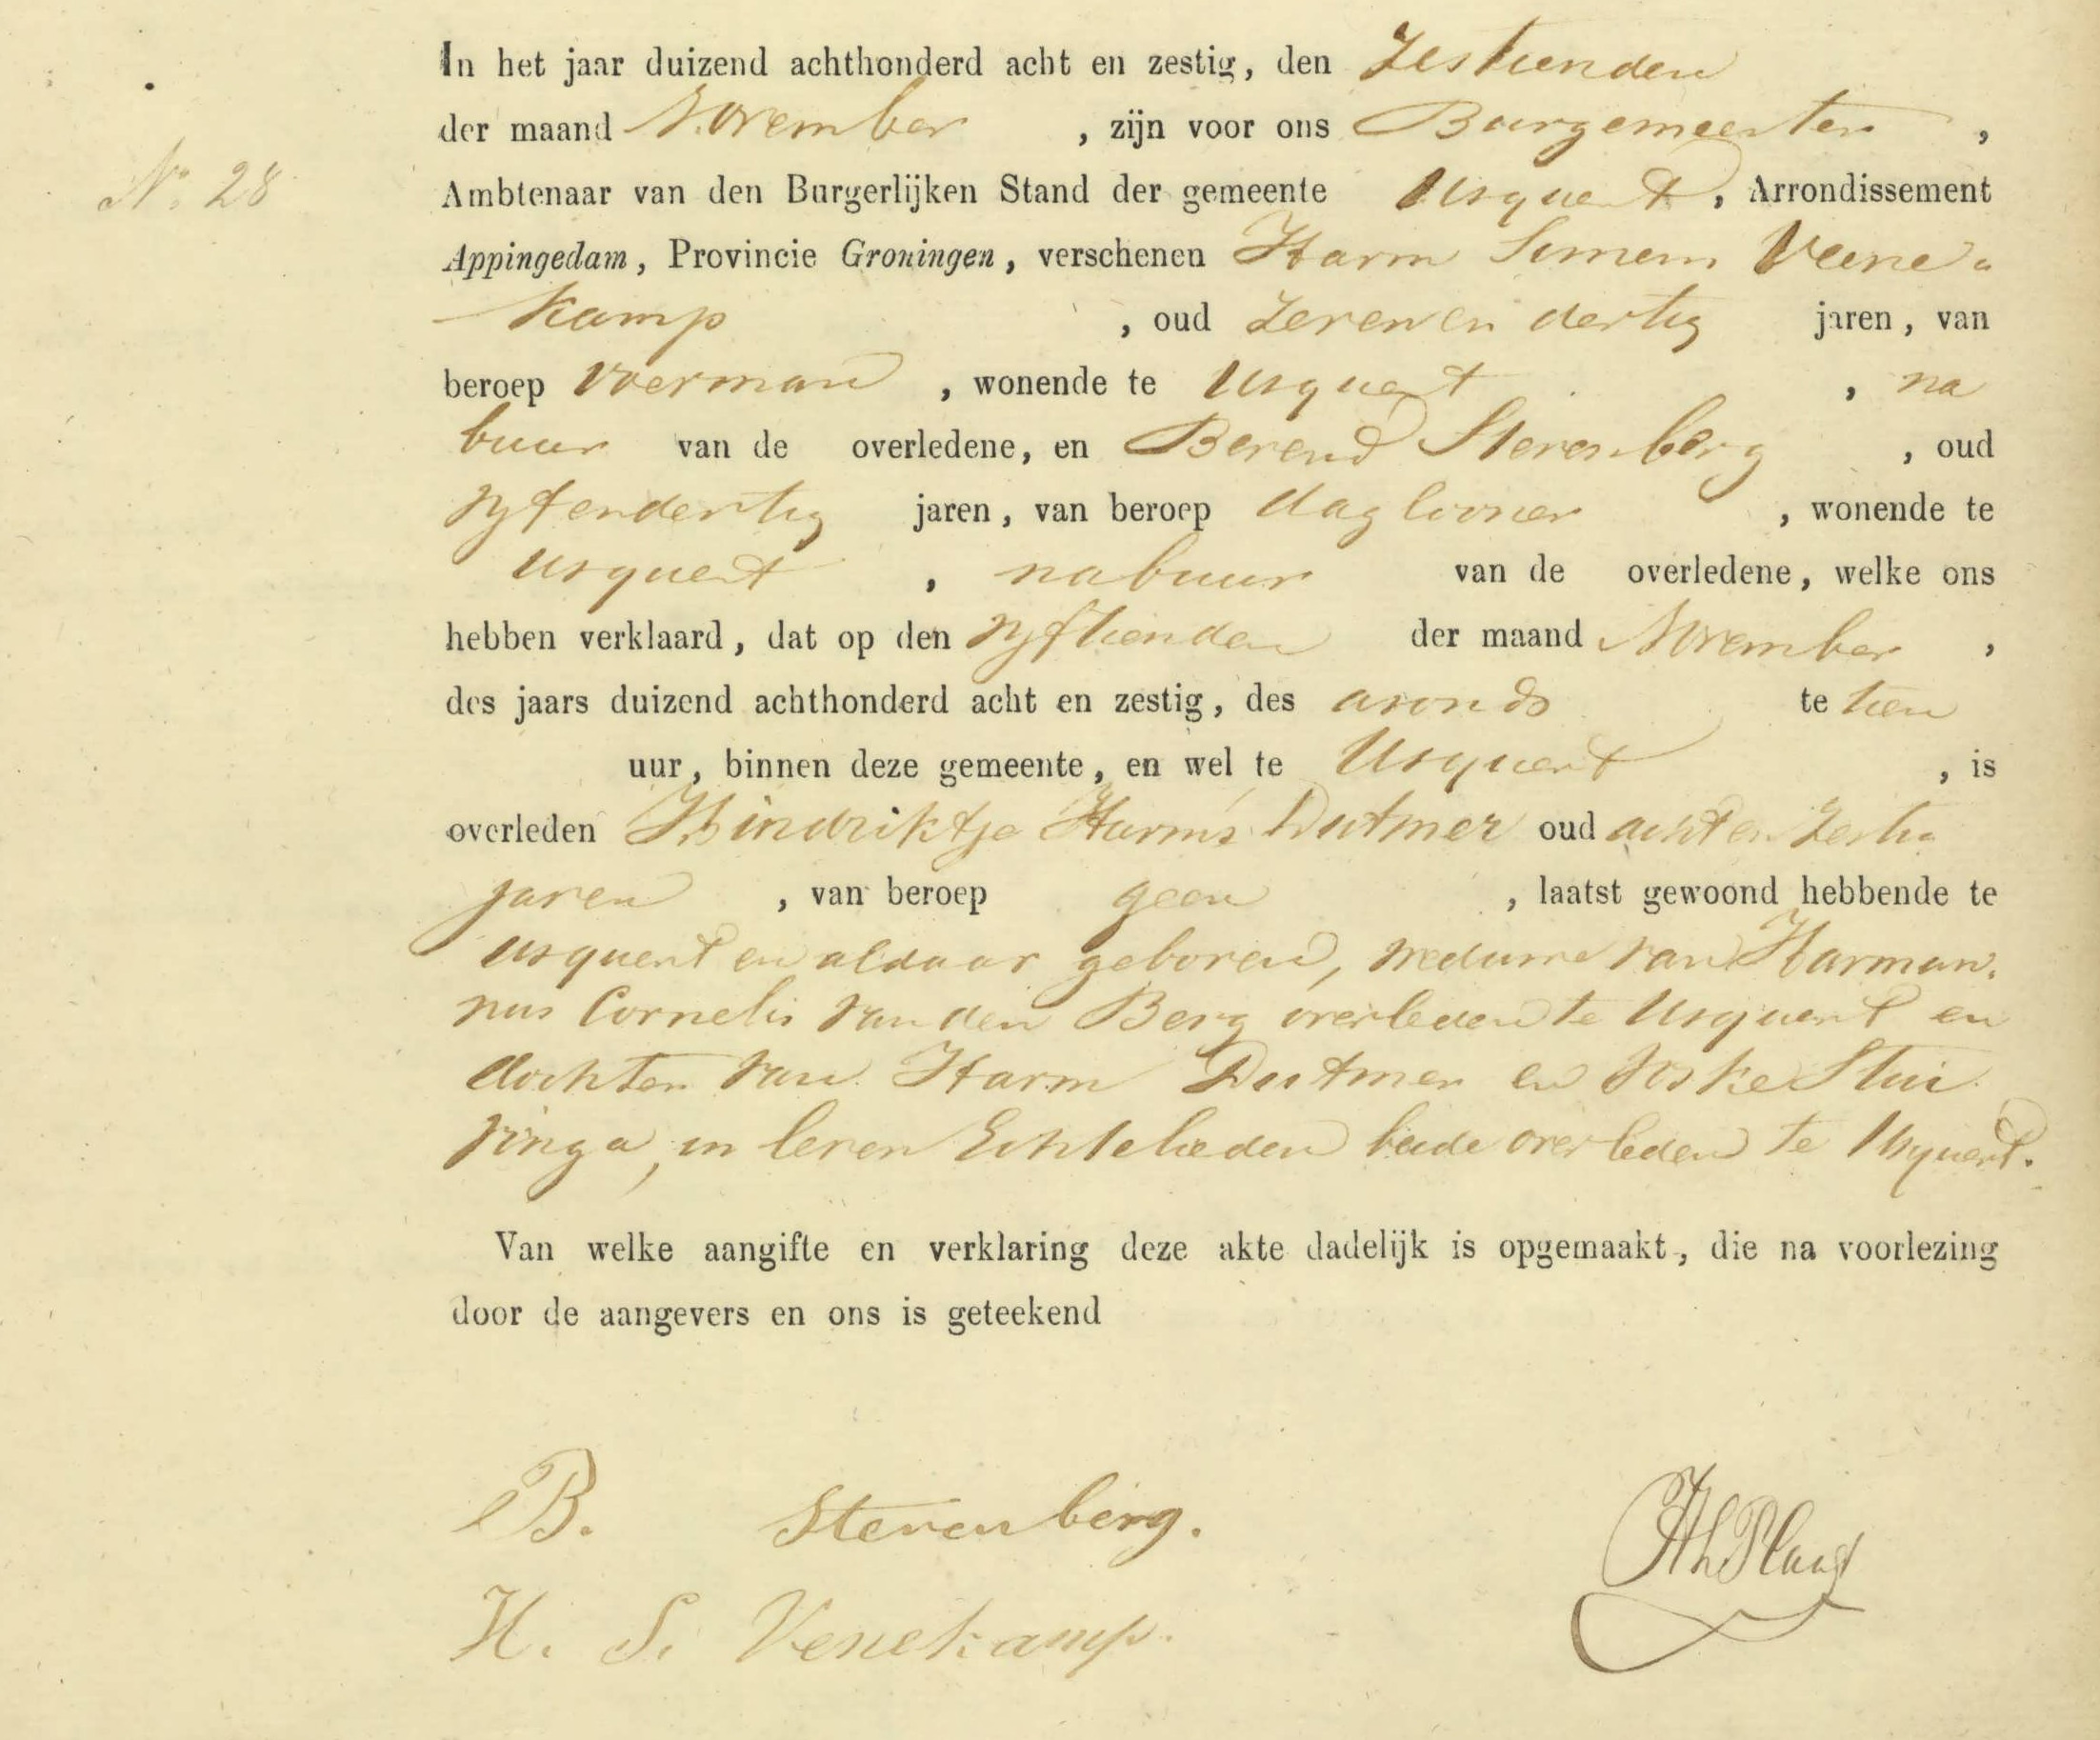 In het jaar duizend achthonderd acht en zestig, den Zestienden
der maand November , zijn voor ons Burgemeester ,
N.º 28
Ambtenaar van den Burgerlijken Stand der gemeente Usquert , Arrondissement
Appingedam, Provincie Groningen, verschenen Harm Simens Veene-
kamp , oud zeven en dertig jaren, van
beroep voerman , wonende te Usquert , na
buur van de overledene, en Berend Sterenberg , oud
vyfendertig jaren, van beroep daglooner , wonende te
Usquert , nabuur van de overledene, welke ons
hebben verklaard, dat op den vyftienden der maand November ,
des jaars duizend achthonderd acht en zestig, des avonds te tien
uur, binnen deze gemeente, en wel te Usquert , is
overleden Hindriktje Harms Dutmer oud acht en zestig
jaren , van beroep geen , laatst gewoond hebbende te
Usquert en aldaar geboren, weduwe van Harman-
nus Cornelis van den Berg overleden te Usquert en
dochter van Harm Dutmer en Stui
vinga, in leven Echtelieden beide overleden te Usquert.
Van welke aangifte en verklaring deze akte dadelijk is opgemaakt, die na voorlezing
door de aangevers en ons is geteekend
B. Sterenberg.
H. S. Venekamp.